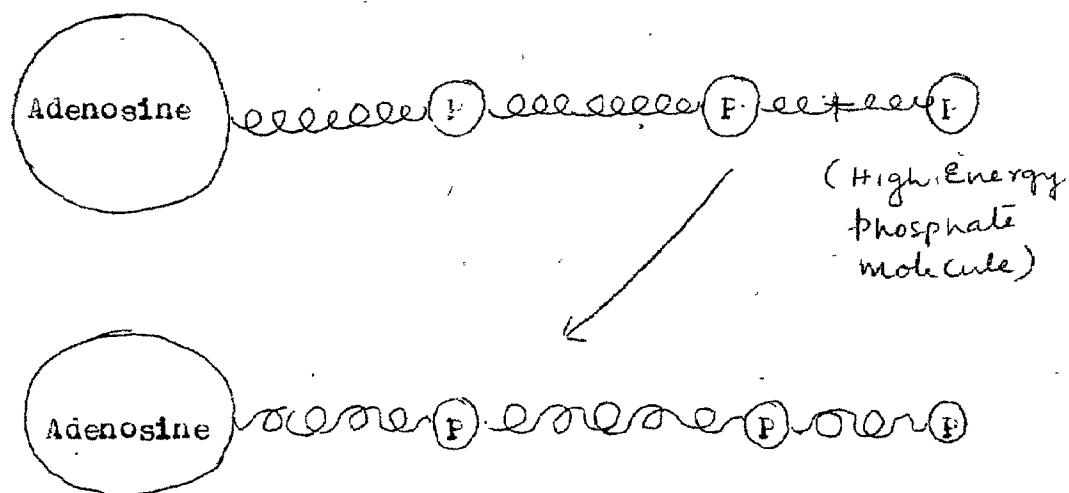 Adenosine P P P
(High Energy
phosphate
molecule)
Adenosine P P P